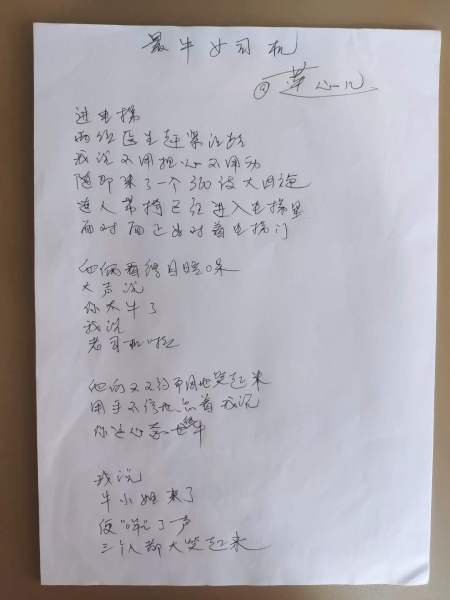 最牛女司机
@莲心儿
进电梯
两位医生赶紧让路
我说不用担心不用动
随即来了一个360度大回旋
连人带椅已经进入电梯里
面对面正好对着电梯门
他俩看得目瞪口呆
大声说
你太牛了
我说
老司机啦
他俩又不约而同地笑起来
用手不停地点着我说
你这心态
牛
我说
牛小姐来了
便"哞"了一声
三个人都大笑起来